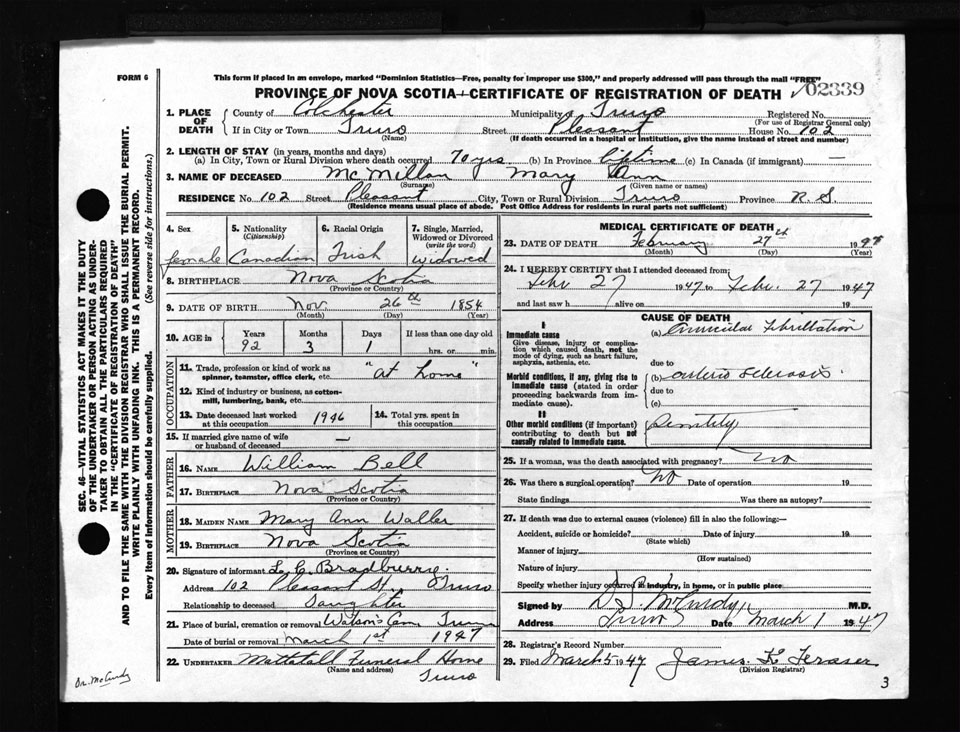 FORM 6
This form if placed in an envelope, marked "Dominion Statistics—Free, penalty for improper use $300," and properly addressed will pass through the mail "FREE"
PROVINCE OF NOVA SCOTIA—CERTIFICATE OF REGISTRATION OF DEATH 02339
1. PLACE OF DEATH County of Colchester Municipality of Truro Registered No.
(For use of Registrar General only)
If in City or Town Truro Street Pleasant House No. 102
(Name) (If death occurred in a hospital or institution, give the name instead of street and number)
2. LENGTH OF STAY (in years, months and days)
(a) In City, Town or Rural Division where death occurred 70 yrs (b) In Province lifetime (c) In Canada (if immigrant) —
3. NAME OF DECEASED McMillan Mary Ann
(Surname) (Given name or names)
RESIDENCE No. 102 Street Pleasant City, Town or Rural Division Truro Province N.S.
(Residence means usual place of abode. Post Office Address for residents in rural parts not sufficient)
4. Sex female
5. Nationality (Citizenship) Canadian
6. Racial Origin Irish
7. Single, Married, Widowed or Divorced (write the word) Widowed
8. BIRTHPLACE Nova Scotia
(Province or Country)
9. DATE OF BIRTH Nov. 26th 1854
(Month) (Day) (Year)
10. AGE in Years 92 Months 3 Days 1 If less than one day old hrs. or min.
OCCUPATION
11. Trade, profession or kind of work as spinner, teamster, office clerk, etc. "at home"
12. Kind of industry or business, as cotton-mill, lumbering, bank, etc.
13. Date deceased last worked at this occupation 1946
14. Total yrs. spent in this occupation
15. If married give name of wife or husband of deceased —
FATHER
16. NAME William Bell
17. BIRTHPLACE Nova Scotia
(Province or Country)
MOTHER
18. MAIDEN NAME Mary Ann Waller
19. BIRTHPLACE Nova Scotia
(Province or Country)
20. Signature of informant L. C. Bradburry
Address 102 Pleasant St. Truro
Relationship to deceased Daughter
21. Place of burial, cremation or removal Watson's Cem Truro
Date of burial or removal March 1st 1947
22. UNDERTAKER Mattatall Funeral Home
(Name and address)
Truro
MEDICAL CERTIFICATE OF DEATH
23. DATE OF DEATH February 27th 1947
(Month) (Day) (Year)
24. I HEREBY CERTIFY that I attended deceased from
Febr 27 1947 to Febr. 27 1947
and last saw h alive on 19
CAUSE OF DEATH
I
Immediate cause (a) Auricular Fibrillation
Give disease, injury or complication which caused death, not the mode of dying, such as heart failure, asphyxia, asthenia, etc.
due to
Morbid conditions, if any, giving rise to immediate cause (stated in order proceeding backwards from immediate cause). (b) arterio sclerosis
due to
(c)
II
Other morbid conditions (if important) contributing to death but not causally related to immediate cause. Senility
25. If a woman, was the death associated with pregnancy? No
26. Was there a surgical operation? No Date of operation 19
State findings Was there an autopsy?
27. If death was due to external causes (violence) fill in also the following:—
Accident, suicide or homicide? Date of injury 19
(State which)
Manner of injury
(How sustained)
Nature of injury
Specify whether injury occurred in industry, in home, or in public place
Signed by D. S. McCurdy M.D.
Address Truro Date March 1 1947
28. Registrar's Record Number
29. Filed March 5 1947 James K Fraser
(Division Registrar)
SEC. 46—VITAL STATISTICS ACT MAKES IT THE DUTY
OF THE UNDERTAKER OR PERSON ACTING AS UNDER-
TAKER TO OBTAIN ALL THE PARTICULARS REQUIRED
IN THE "CERTIFICATE OF REGISTRATION OF DEATH"
AND TO FILE THE SAME WITH THE DIVISION REGISTRAR WHO SHALL ISSUE THE BURIAL PERMIT.
WRITE PLAINLY WITH UNFADING INK. THIS IS A PERMANENT RECORD.
Every item of information should be carefully supplied. (See reverse side for instructions.)
Dr. McCurdy
3